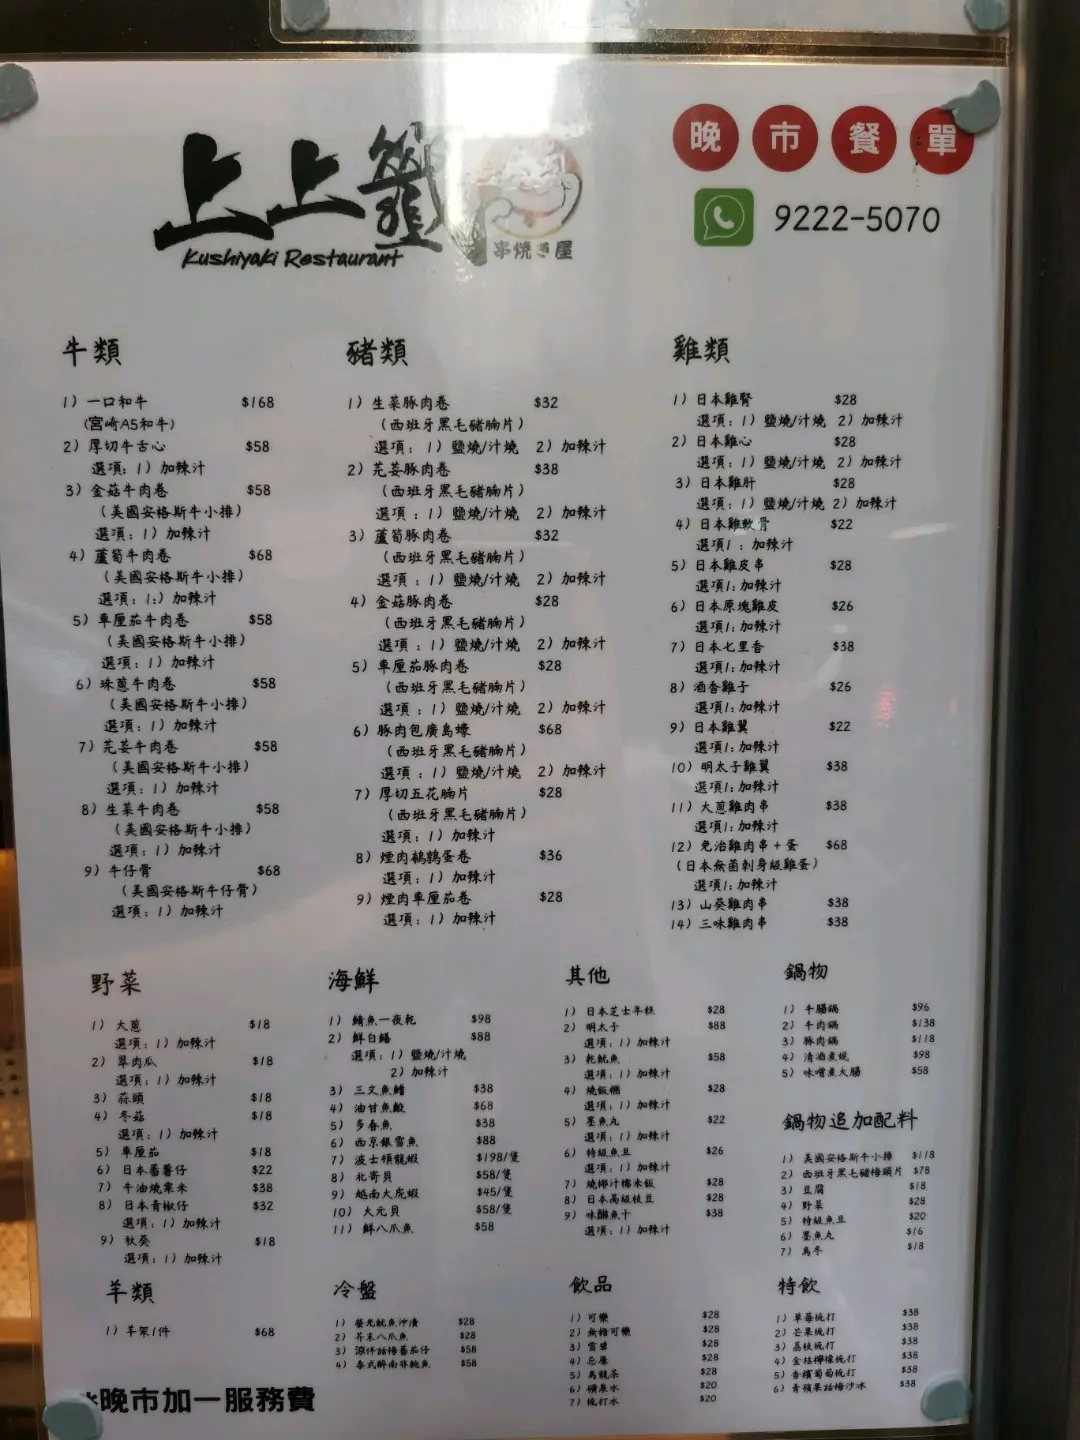 上上籤
Kushiyaki Restaurant
串焼き屋
晚市餐單
9222-5070
牛類
1) 一口和牛 $168
(宮崎A5和牛)
2) 厚切牛舌心 $58
選項：1) 加辣汁
3) 金菇牛肉卷 $58
(美國安格斯牛小排)
選項：1) 加辣汁
4) 蘆筍牛肉卷 $68
(美國安格斯牛小排)
選項：1:) 加辣汁
5) 車厘茄牛肉卷 $58
(美國安格斯牛小排)
選項：1) 加辣汁
6) 珠蔥牛肉卷 $58
(美國安格斯牛小排)
選項：1) 加辣汁
7) 芫荽牛肉卷 $58
(美國安格斯牛小排)
選項：1) 加辣汁
8) 生菜牛肉卷 $58
(美國安格斯牛小排)
選項：1) 加辣汁
9) 牛仔骨 $68
(美國安格斯牛仔骨)
選項：1) 加辣汁
豬類
1) 生菜豚肉卷 $32
(西班牙黑毛豬腩片)
選項：1) 鹽燒/汁燒 2) 加辣汁
2) 芫荽豚肉卷 $38
(西班牙黑毛豬腩片)
選項：1) 鹽燒/汁燒 2) 加辣汁
3) 蘆筍豚肉卷 $32
(西班牙黑毛豬腩片)
選項：1) 鹽燒/汁燒 2) 加辣汁
4) 金菇豚肉卷 $28
(西班牙黑毛豬腩片)
選項：1) 鹽燒/汁燒 2) 加辣汁
5) 車厘茄豚肉卷 $28
(西班牙黑毛豬腩片)
選項：1) 鹽燒/汁燒 2) 加辣汁
6) 豚肉包廣島蠔 $68
(西班牙黑毛豬腩片)
選項：1) 鹽燒/汁燒 2) 加辣汁
7) 厚切五花腩片 $28
(西班牙黑毛豬腩片)
選項：1) 加辣汁
8) 煙肉鵪鶉蛋卷 $36
選項：1) 加辣汁
9) 煙肉車厘茄卷 $28
選項：1) 加辣汁
雞類
1) 日本雞腎 $28
選項：1) 鹽燒/汁燒 2) 加辣汁
2) 日本雞心 $28
選項：1) 鹽燒/汁燒 2) 加辣汁
3) 日本雞肝 $28
選項：1) 鹽燒/汁燒 2) 加辣汁
4) 日本雞軟骨 $22
選項1：加辣汁
5) 日本雞皮串 $28
選項1：加辣汁
6) 日本原塊雞皮 $26
選項1：加辣汁
7) 日本七里香 $38
選項1：加辣汁
8) 酒香雞子 $26
選項1：加辣汁
9) 日本雞翼 $22
選項1：加辣汁
10) 明太子雞翼 $38
選項1：加辣汁
11) 大蔥雞肉串 $38
選項1：加辣汁
12) 免治雞肉串+蛋 $68
(日本無菌刺身級雞蛋)
選項1：加辣汁
13) 山葵雞肉串 $38
14) 三味雞肉串 $38
野菜
1) 大蔥 $18
選項：1) 加辣汁
2) 翠肉瓜 $18
選項：1) 加辣汁
3) 蒜頭 $18
4) 冬菇 $18
選項：1) 加辣汁
5) 車厘茄 $18
6) 日本蕃薯仔 $22
7) 牛油燒粟米 $38
8) 日本青椒仔 $32
選項：1) 加辣汁
9) 秋葵 $18
選項：1) 加辣汁
海鮮
1) 鯖魚一夜乾 $98
2) 鮮白鱔 $88
選項：1) 鹽燒/汁燒
2) 加辣汁
3) 三文魚鰭 $38
4) 油甘魚鮫 $68
5) 多春魚 $38
6) 西京銀雪魚 $88
7) 波士頓龍蝦 $198/隻
8) 北寄貝 $58/隻
9) 越南大虎蝦 $45/隻
10) 大元貝 $58/隻
11) 鮮八爪魚 $58
其他
1) 日本芝士年糕 $28
2) 明太子 $88
選項：1) 加辣汁
3) 乾魷魚 $58
選項：1) 加辣汁
4) 燒飯糰 $28
選項：1) 加辣汁
5) 墨魚丸 $22
選項：1) 加辣汁
6) 特級魚豆 $26
選項：1) 加辣汁
7) 燒椰汁糯米飯 $28
8) 日本高級枝豆 $28
9) 味醂魚干 $38
選項：1) 加辣汁
鍋物
1) 牛腸鍋 $96
2) 牛肉鍋 $138
3) 豚肉鍋 $118
4) 清酒煮蜆 $98
5) 味噌煮大腸 $58
鍋物追加配料
1) 美國安格斯牛小排 $118
2) 西班牙黑毛豬梅頭片 $78
3) 豆腐 $18
4) 野菜 $28
5) 特級魚豆 $20
6) 墨魚丸 $16
7) 烏冬 $18
羊類
1) 羊架1件 $68
冷盤
1) 螢光魷魚沖漬 $28
2) 芥末八爪魚 $28
3) 涼伴話梅番茄仔 $58
4) 泰式醉南非鮑魚 $58
飲品
1) 可樂 $28
2) 無糖可樂 $28
3) 雪碧 $28
4) 忌廉 $28
5) 烏龍茶 $28
6) 礦泉水 $20
7) 梳打水 $20
特飲
1) 草莓梳打 $38
2) 芒果梳打 $38
3) 荔枝梳打 $38
4) 金桔檸檬梳打 $38
5) 香檳葡萄梳打 $38
6) 青蘋果話梅沙冰 $38
*晚市加一服務費